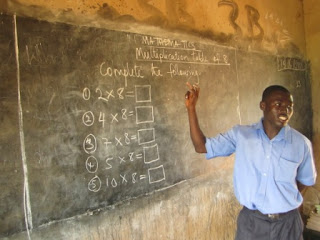 MATHEMATICS
Multiplication Table of 8
Complete the following
① 2×8=
② 4×8=
③ 7×8=
④ 5×8=
⑤ 10×8=
3B